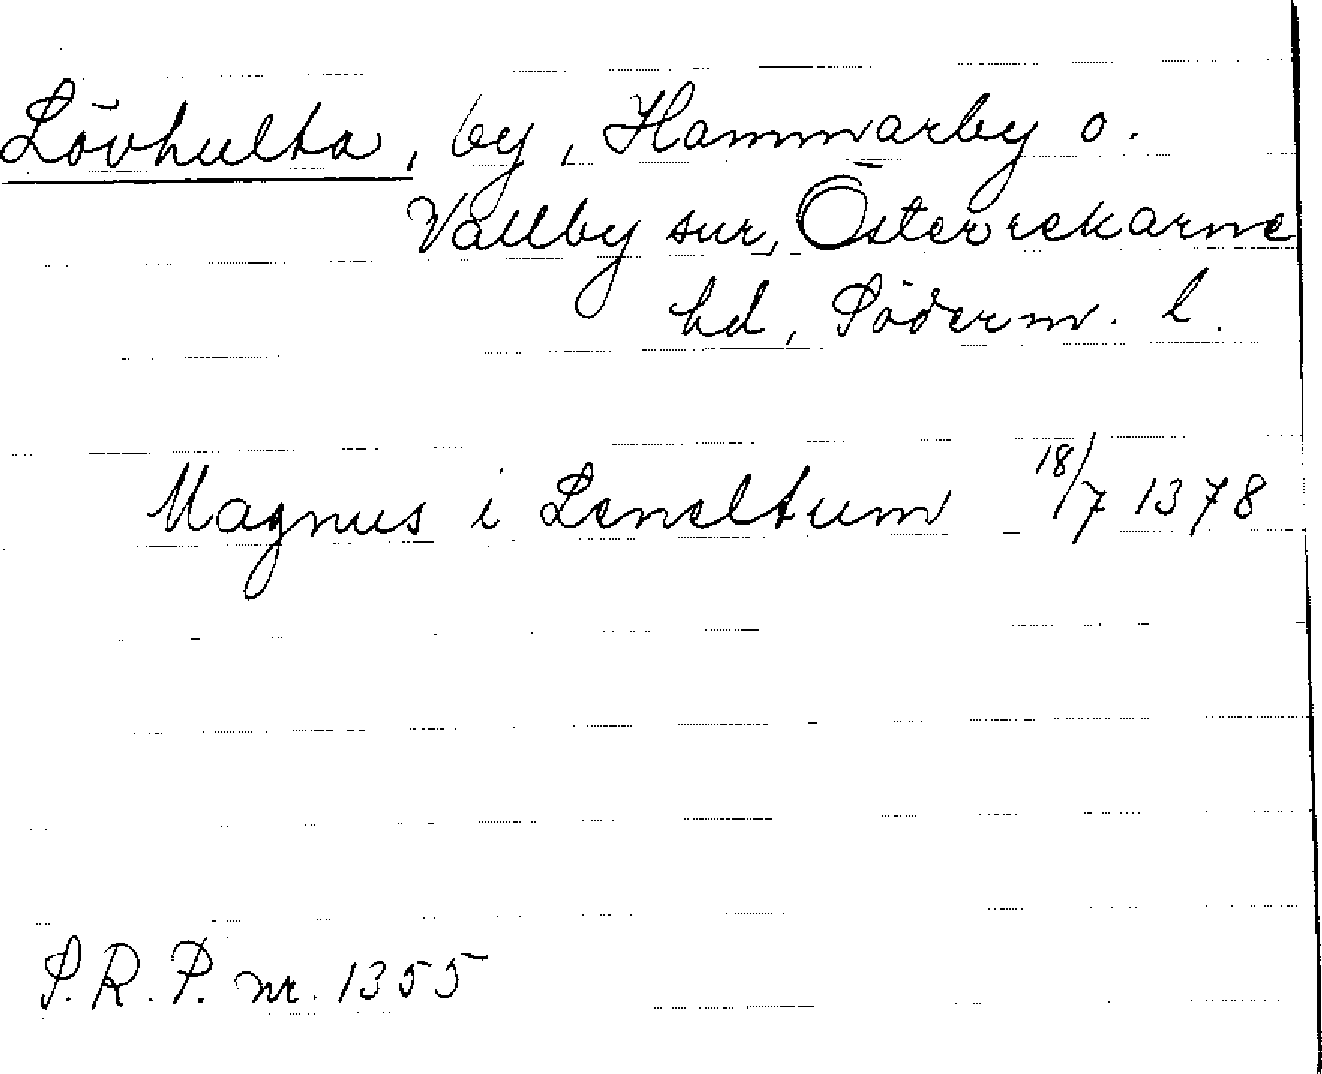 Lövhulta, by, Hammarby o.
Vallby snr, Österrekarne
hd, Söderm. l.
Magnus i Leneltum 18/7 1378
S.R.P. nr. 1355